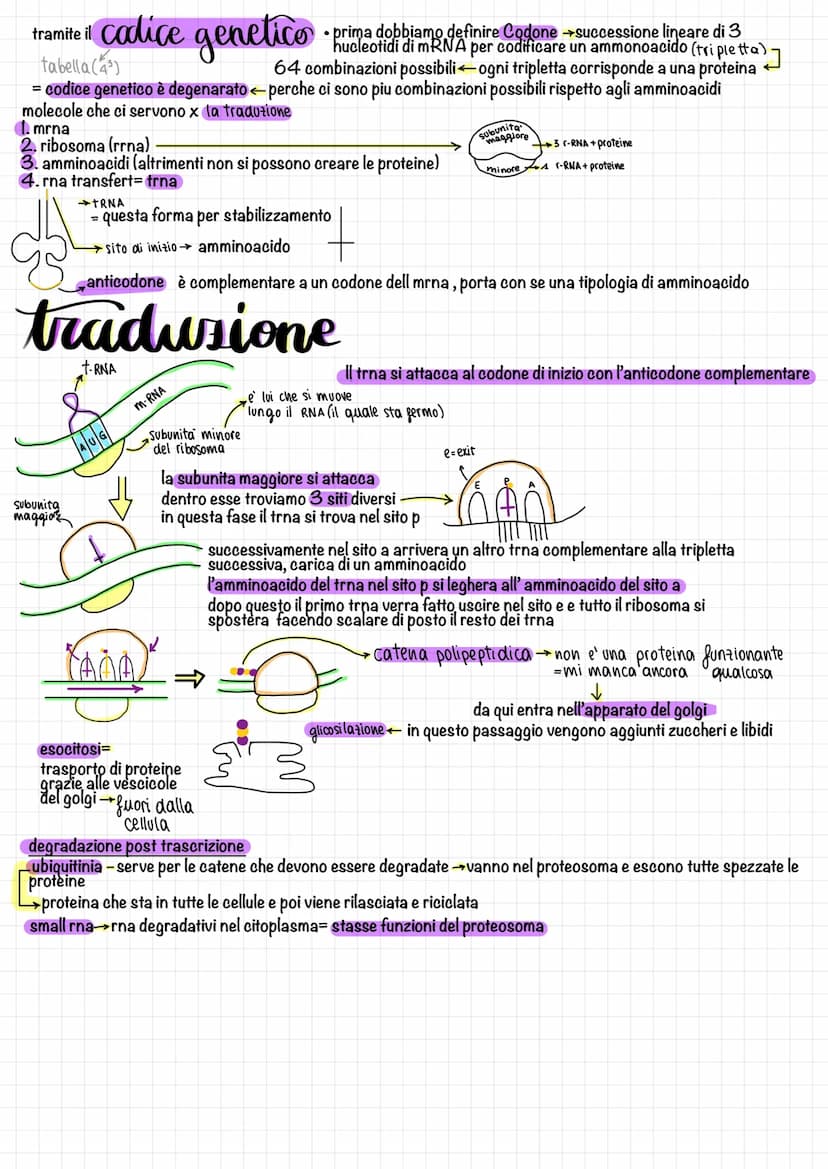 tramite il codice genetico • prima dobbiamo definire Codone → successione lineare di 3
nucleotidi di mRNA per codificare un ammonoacido (tripletta)
tabella (4³)
64 combinazioni possibili ← ogni tripletta corrisponde a una proteina
= codice genetico è degenarato ← perche ci sono piu combinazioni possibili rispetto agli amminoacidi
molecole che ci servono x la traduzione
1. mrna
2. ribosoma (rrna)
3. amminoacidi (altrimenti non si possono creare le proteine)
4. rna transfert= trna
subunita' maggiore → 3 r-RNA + proteine
minore → 1 r-RNA + proteine
→ tRNA
= questa forma per stabilizzamento
→ sito di inizio → amminoacido
→ anticodone è complementare a un codone dell mrna , porta con se una tipologia di amminoacido
traduzione
t-RNA
m-RNA
Il trna si attacca al codone di inizio con l'anticodone complementare
e' lui che si muove
lungo il RNA (il quale sta fermo)
A U G
subunita' minore
del ribosoma
e=exit
la subunita maggiore si attacca
dentro esse troviamo 3 siti diversi →
in questa fase il trna si trova nel sito p
E P A
subunita
maggiore
successivamente nel sito a arrivera un altro trna complementare alla tripletta
successiva, carica di un amminoacido
l'amminoacido del trna nel sito p si leghera all' amminoacido del sito a
dopo questo il primo trna verra fatto uscire nel sito e e tutto il ribosoma si
spostera facendo scalare di posto il resto dei trna
catena polipeptidica → non e' una proteina funzionante
=mi manca ancora qualcosa
da qui entra nell'apparato del golgi
glicosilazione ← in questo passaggio vengono aggiunti zuccheri e libidi
esocitosi=
trasporto di proteine
grazie alle vescicole
del golgi → fuori dalla
cellula
degradazione post trascrizione
ubiquitinia – serve per le catene che devono essere degradate → vanno nel proteosoma e escono tutte spezzate le
proteine
→ proteina che sta in tutte le cellule e poi viene rilasciata e riciclata
small rna → rna degradativi nel citoplasma= stasse funzioni del proteosoma